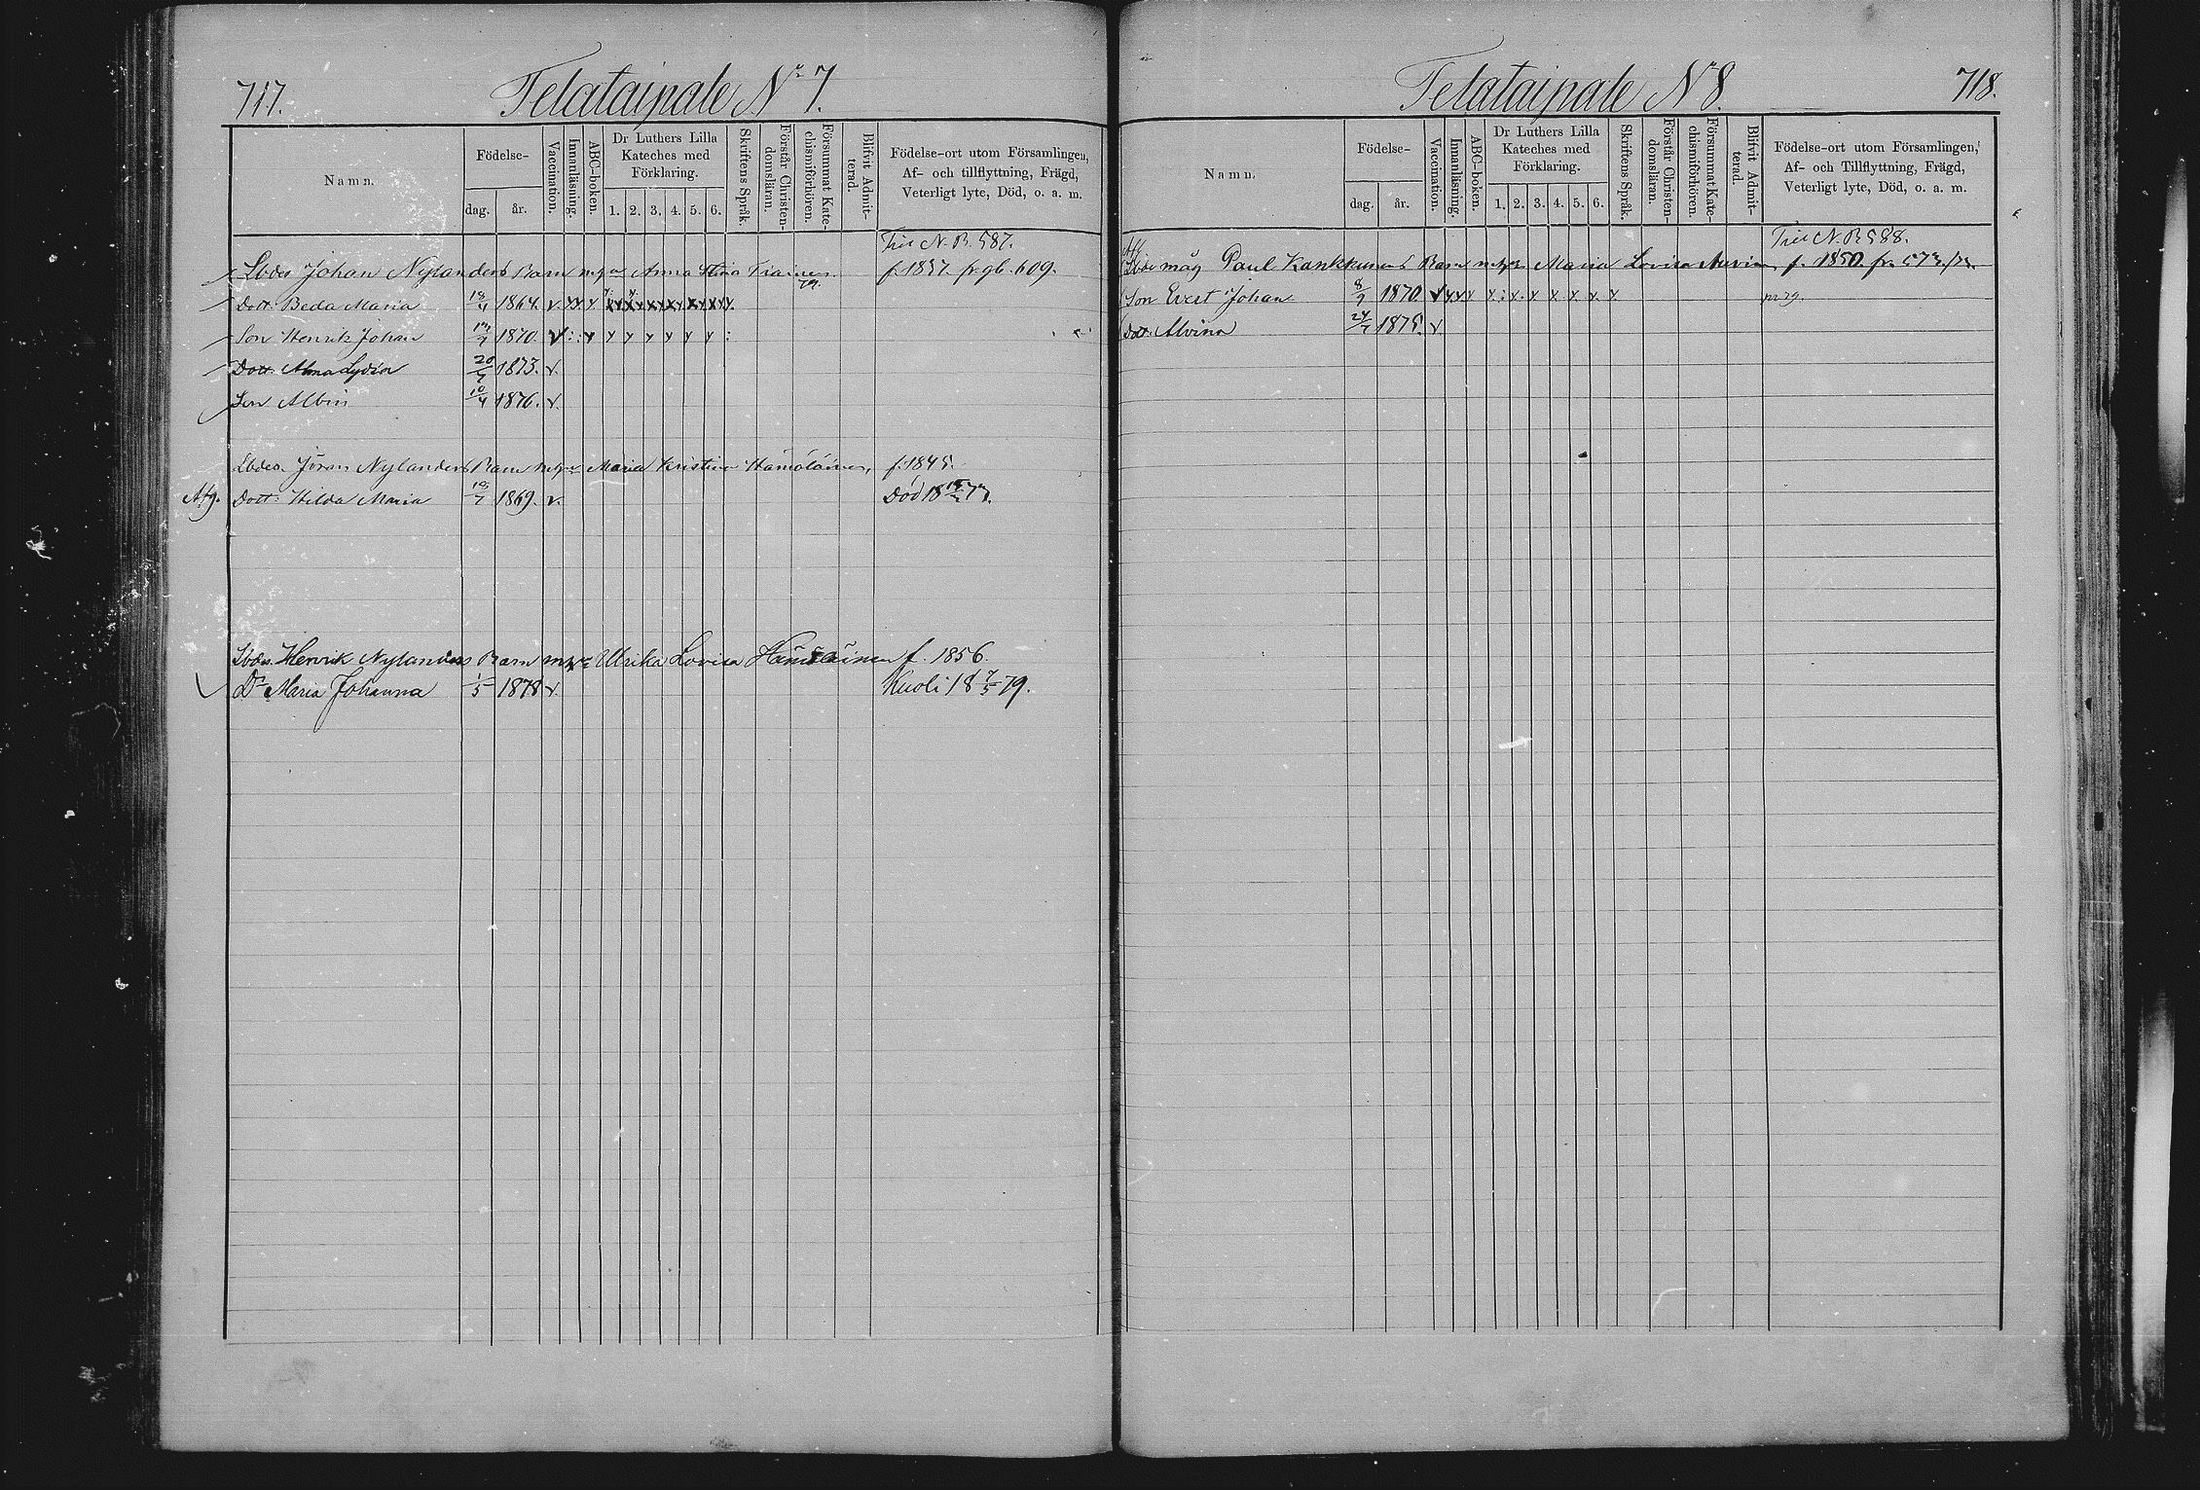 717.
Telataipale No 7.
Namn.
Födelse-
dag.
år.
Vaccination.
Innanläsning.
ABC-boken.
Dr Luthers Lilla
Kateches med
Förklaring.
1. 2. 3. 4. 5. 6.
Skriftens Språk.
Förstår Christen-
domsläran.
Försummat Kate-
chismiförhören.
Blifvit Admit-
terad.
Födelse-ort utom Församlingen,
Af- och tillflyttning, Frägd,
Veterligt lyte, Död, o. a. m.
Till N. B. 587.
Lbdes Johan Nylanders Barn m. Anna Stina f. 1837. fr. gb. 609.
79.
Dott. Beda Maria 18/4 1864. v
Son Henrik Johan 1870. v
Dott. Alma Lydia 1873. v.
Son Albin 10/4 1876. v.
Lbdes. Jöran Nylanders Barn Maria Kristina Hämäläinen, f. 1845.
Afg. Dott. Hilda Maria 1869. v. Död 18 73.
Lbdes. Henrik Nylanders Barn Ulrika Lovisa Hämäläinen f. 1856.
Dr Maria Johanna 1/5 1878 v. Kuoli 18 7/5 79.
718.
Telataipale No 8.
Namn.
Födelse-
dag.
år.
Vaccination.
Innanläsning.
ABC-boken.
Dr Luthers Lilla
Kateches med
Förklaring.
1. 2. 3. 4. 5. 6.
Skriftens Språk.
Förstår Christen-
domsläran.
Försummat Kate-
chismiförhören.
Blifvit Admit-
terad.
Födelse-ort utom Församlingen,
Af- och Tillflyttning, Frägd,
Veterligt lyte, Död, o. a. m.
Till N. B. 588.
måg Paul Kankkunens Barn Maria Lovisa f. 1850.
Son Evert Johan 1870 v
Dott. Alvina 1875. v